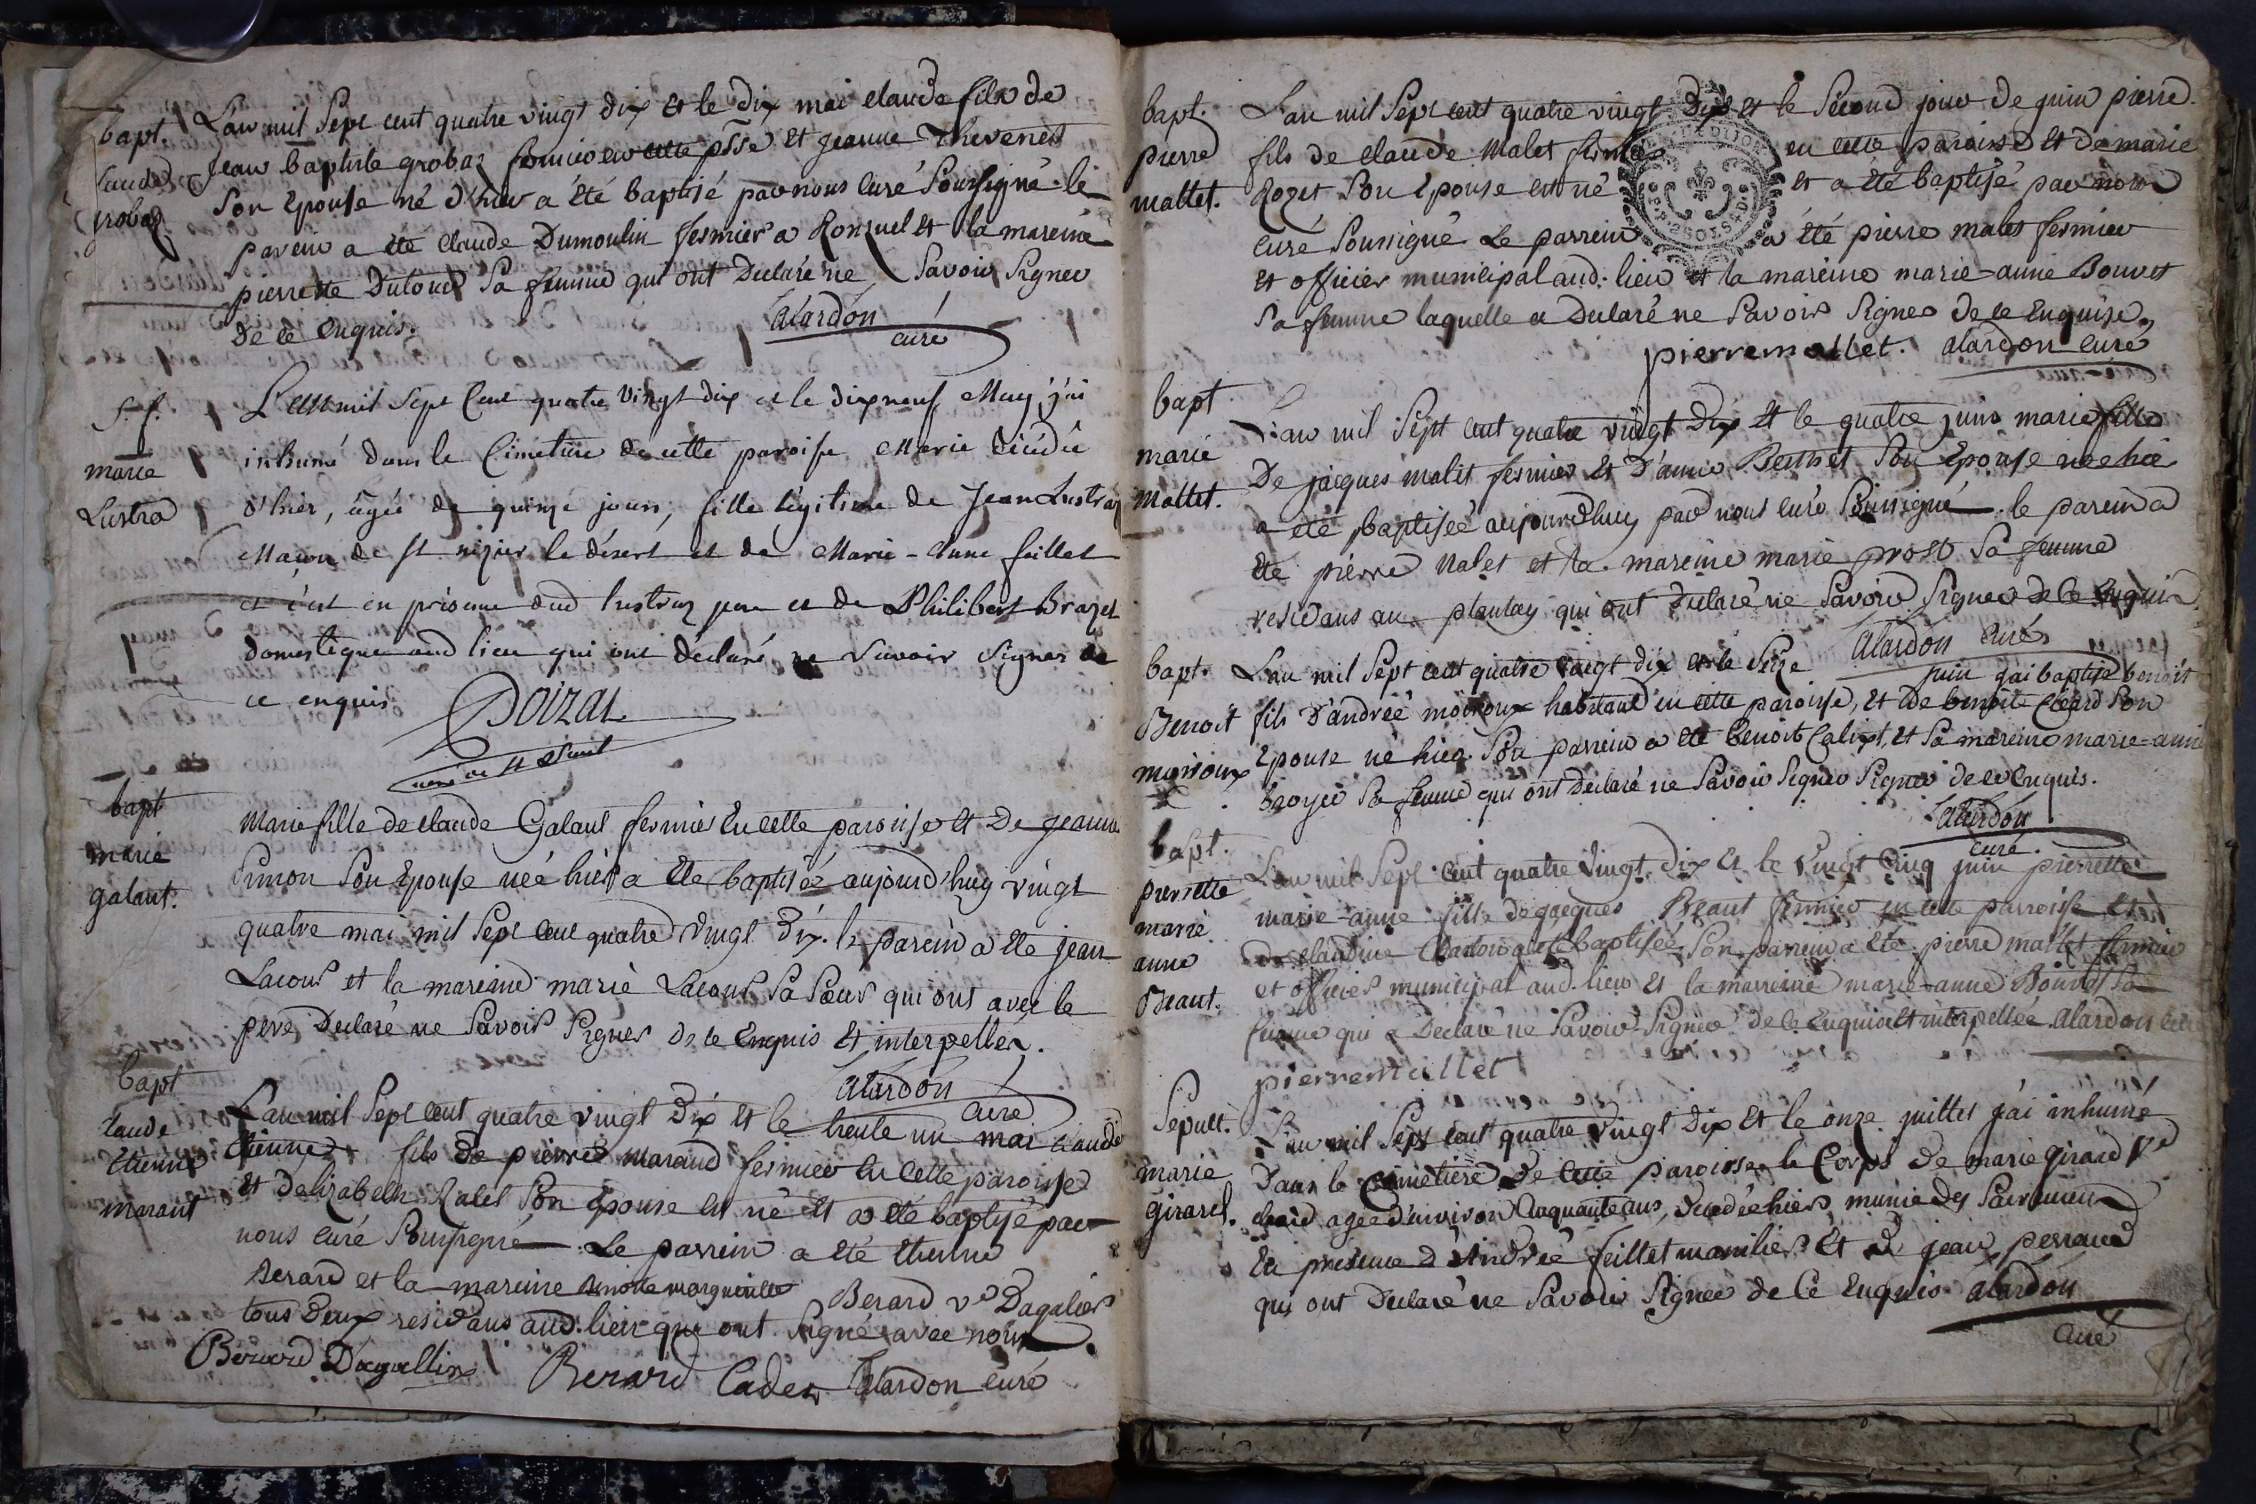 bapt.
claude
grobaz
L'an mil Sept cent quatre vingt dix et le dix mai claude fils de
Jean baptiste grobaz fermier en cette psse et jeanne Thevenet
Son Epouse né d'hier a été baptisé par nous curé Soussigné le
parein a été claude Dumoulin fermier a Ronzuel et la mareine
pierrette Dutour Sa femme qui ont Declaré ne Savoir Signer
De ce Enquis.
alardon
curé
s. f.
marie
Lustra
L'an mil Sept Cent quatre vingt dix et le dixneuf May j'ai
inhumé dans le Cimetiere de cette paroisse Marie décédée
d'hier, âgée de quinze jours, fille légitime de Jean Lustraz
Maçon de st nizier le désert et de Marie-Anne feuillet
et c'est en présence dud lustraz pere et de Philibert Brazet
domestique aud lieu qui ont déclaré ne savoir signer de
ce enquis
Doizat
bapt
marie
galant.
Marie fille de claude Galant fermier En cette paroisse et De jeanne
Simon Son Epouse née hier a Ete baptisée aujourd'huy vingt
quatre mai mil Sept cent quatre vingt Dix. le parein a été jean
Lacour et la mareine marie Lacour Sa Sœur qui ont avec le
pere Declaré ne Savoir Signer De ce Enquis Et interpellés.
alardon
curé
bapt
claude
Etienne
maraut
L'an mil Sept cent quatre vingt Dix et le trente un mai claude
Etienne fils de pierre maraud fermier En cette paroisse
Et d'elizabeth Ratel Son Epouse est né Et a été baptisé par
nous curé Soussigné Le parrein a été Etienne
Berard et la mareine Benoite margueritte
Berard ve Dagalier
tous Deux residans aud. lieu qui ont Signé avec nous
Berard Dagallier
Berard Cadet alardon curé
bapt.
pierre
mallet.
L'an mil Sept cent quatre vingt Dix et le Second jour de juin pierre
fils de claude Malet fermier en cette paroisse et de marie
Rozet Son Epouse est né et a été baptisé par nous
curé Soussigné Le parrein a été pierre malet fermier
et officier municipal aud. lieu et la mareine marie-anne Bouvet
Sa femme laquelle a Declaré ne Savoir Signer De ce Enquise.
pierre mallet. alardon curé
bapt
marie
mallet.
L'an mil Sept cent quatre vingt Dix Et le quatre juin marie fille
De jacques malet fermier Et D'anne Berthet Son Epouse née hier
a été baptisée aujourdhuy par nous curé Soussigné le parein a
été pierre Malet et la mareine marie prost Sa femme
residans au plantay qui ont Declaré ne Savoir Signer de Ce Enquis.
alardon curé
bapt.
Benoit
moiroux
L'an mil Sept cent quatre vingt dix et le Seize juin j'ai baptisé benoit
fils D'andré moiroux habitant en cette paroisse, et de benoite Cleard Son
Epouse né hier. Son parrein a été benoit Calixt, et Sa mareine marie-anne
broyer Sa femme qui ont Declaré ne Savoir Signer Signer de ce Enquis.
alardon
curé.
bapt.
pierrette
marie
anne
Beaut.
L'an mil Sept cent quatre Vingt Dix et le Vingt Cinq juin pierrette
marie-anne fille de jacques Beaut fermier en cette parroisse et
de claudine a été baptisée. Son parrein a été pierre mallet fermier
et officier municipal aud. lieu Et la marreine marie-anne Bouvet Sa
femme qui a Declaré ne Savoir Signer de ce Enquise et interpellée alardon curé
pierre mallet
Sepult.
marie
girard.
L'an mil Sept cent quatre Vingt Dix Et le onze juillet j'ai inhumé
Dans le Cimetiere De Cette paroisse le Corps De marie girard Ve
agée d'environ Cinquante ans, Decedée hier, munie Des Sacremens
En presence D'André feillet manilier Et de jean perraud
qui ont Declaré ne Savoir Signer de Ce Enquis alardon
curé